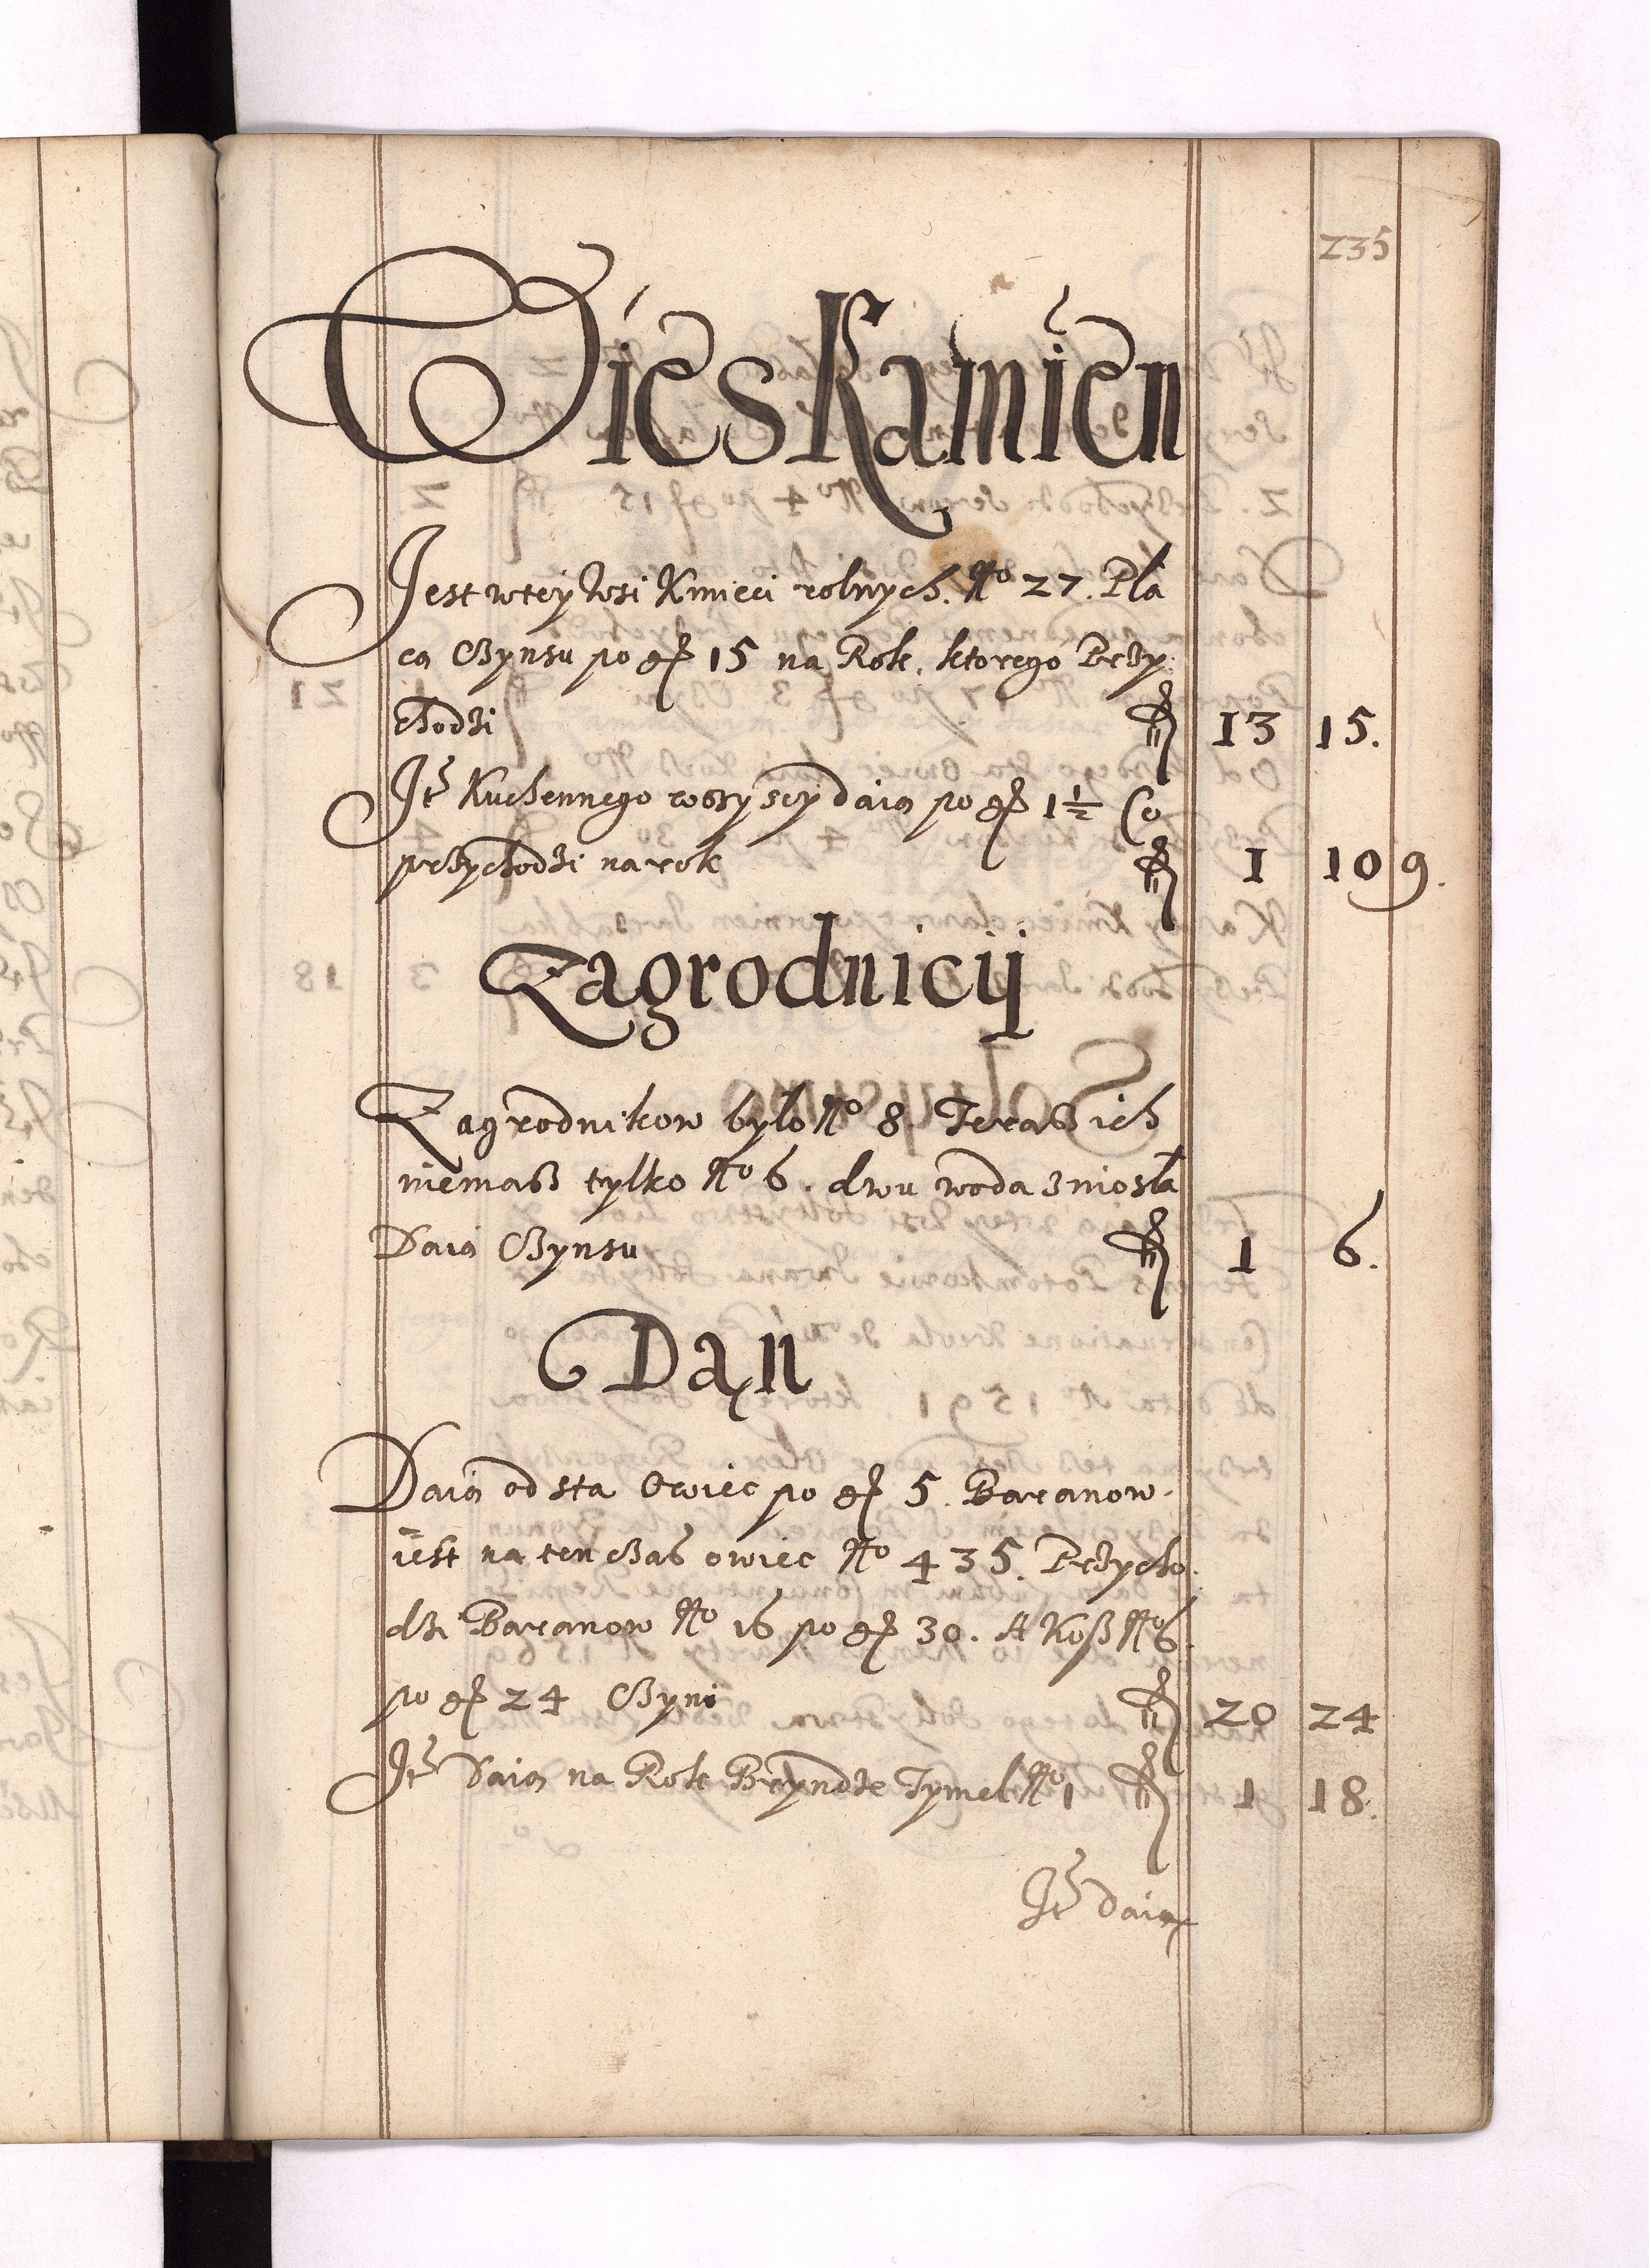 235
Wieś Kamien
Jest wtey Wsi Kmieci rolnych. No 27. Płá
cą Czynsu po gr 15 na Rok. ktorego Przy
chodzi fl 13 15.
Itm Kuchennego wszyscy daią po gr 1½ Co
przychodzi na rok fl 1 10 9.
Zagrodnicy
Zagrodnikow było No 8. Terasz ich
niemasz tylko No 6. dwu woda zniosła
Daią Czynsu fl 1 6.
Dań
Daią od sta Owiec po gr 5. Baranow.
iest na ten czas owiec No 435. Przycho
dzi Baranow No 16 po gr 30. A Kosz No 6.
po gr 24 Czyni fl 20 24
Itm Daią na Rok Bryndze Tymel No 1 fl 1 18.
Itm daią